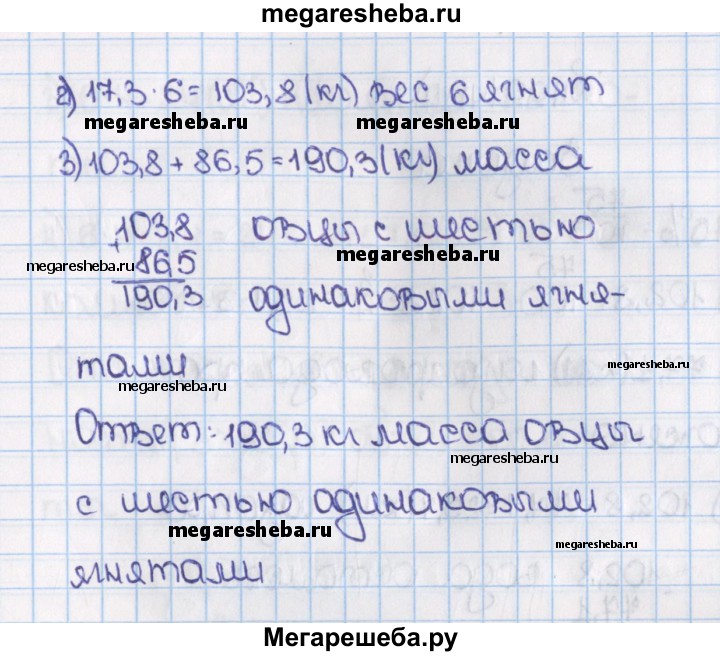 megaresheba.ru
2) 17,3 · 6 = 103,8 (кг) вес 6 ягнят
megaresheba.ru megaresheba.ru
3) 103,8 + 86,5 = 190,3 (кг) масса
+103,8 овцы с шестью
megaresheba.ru
megaresheba.ru 86,5
190,3 одинаковыми ягня-
тами
megaresheba.ru
megaresheba.ru
Ответ: 190,3 кг масса овцы
megaresheba.ru
с шестью одинаковыми
megaresheba.ru
megaresheba.ru
ягнятами
Мегарешеба.ру